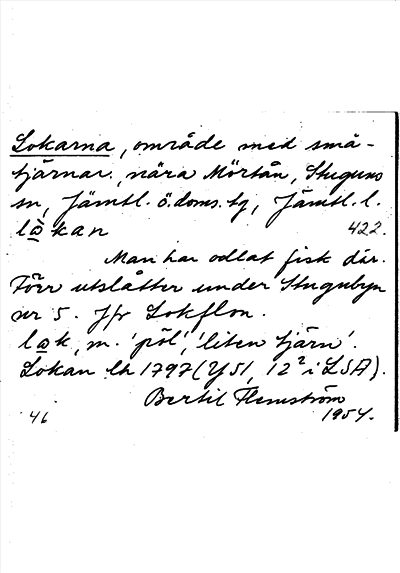 Lokarna, område med små-
tjärnar, nära Mörtån, Stuguns
sn, Jämtl. ö. doms. tg, Jämtl. l.
lo̲kan 422.
Man har odlat fisk där.
Förr utslåtter under Stugubyn
nr 5. Jfr Lokflon.
lo̲k, m. 'pöl', 'liten tjärn'.
Lokan lh 1797 (Y51, 12² i LSA).
Bertil Flemström
46 1954.